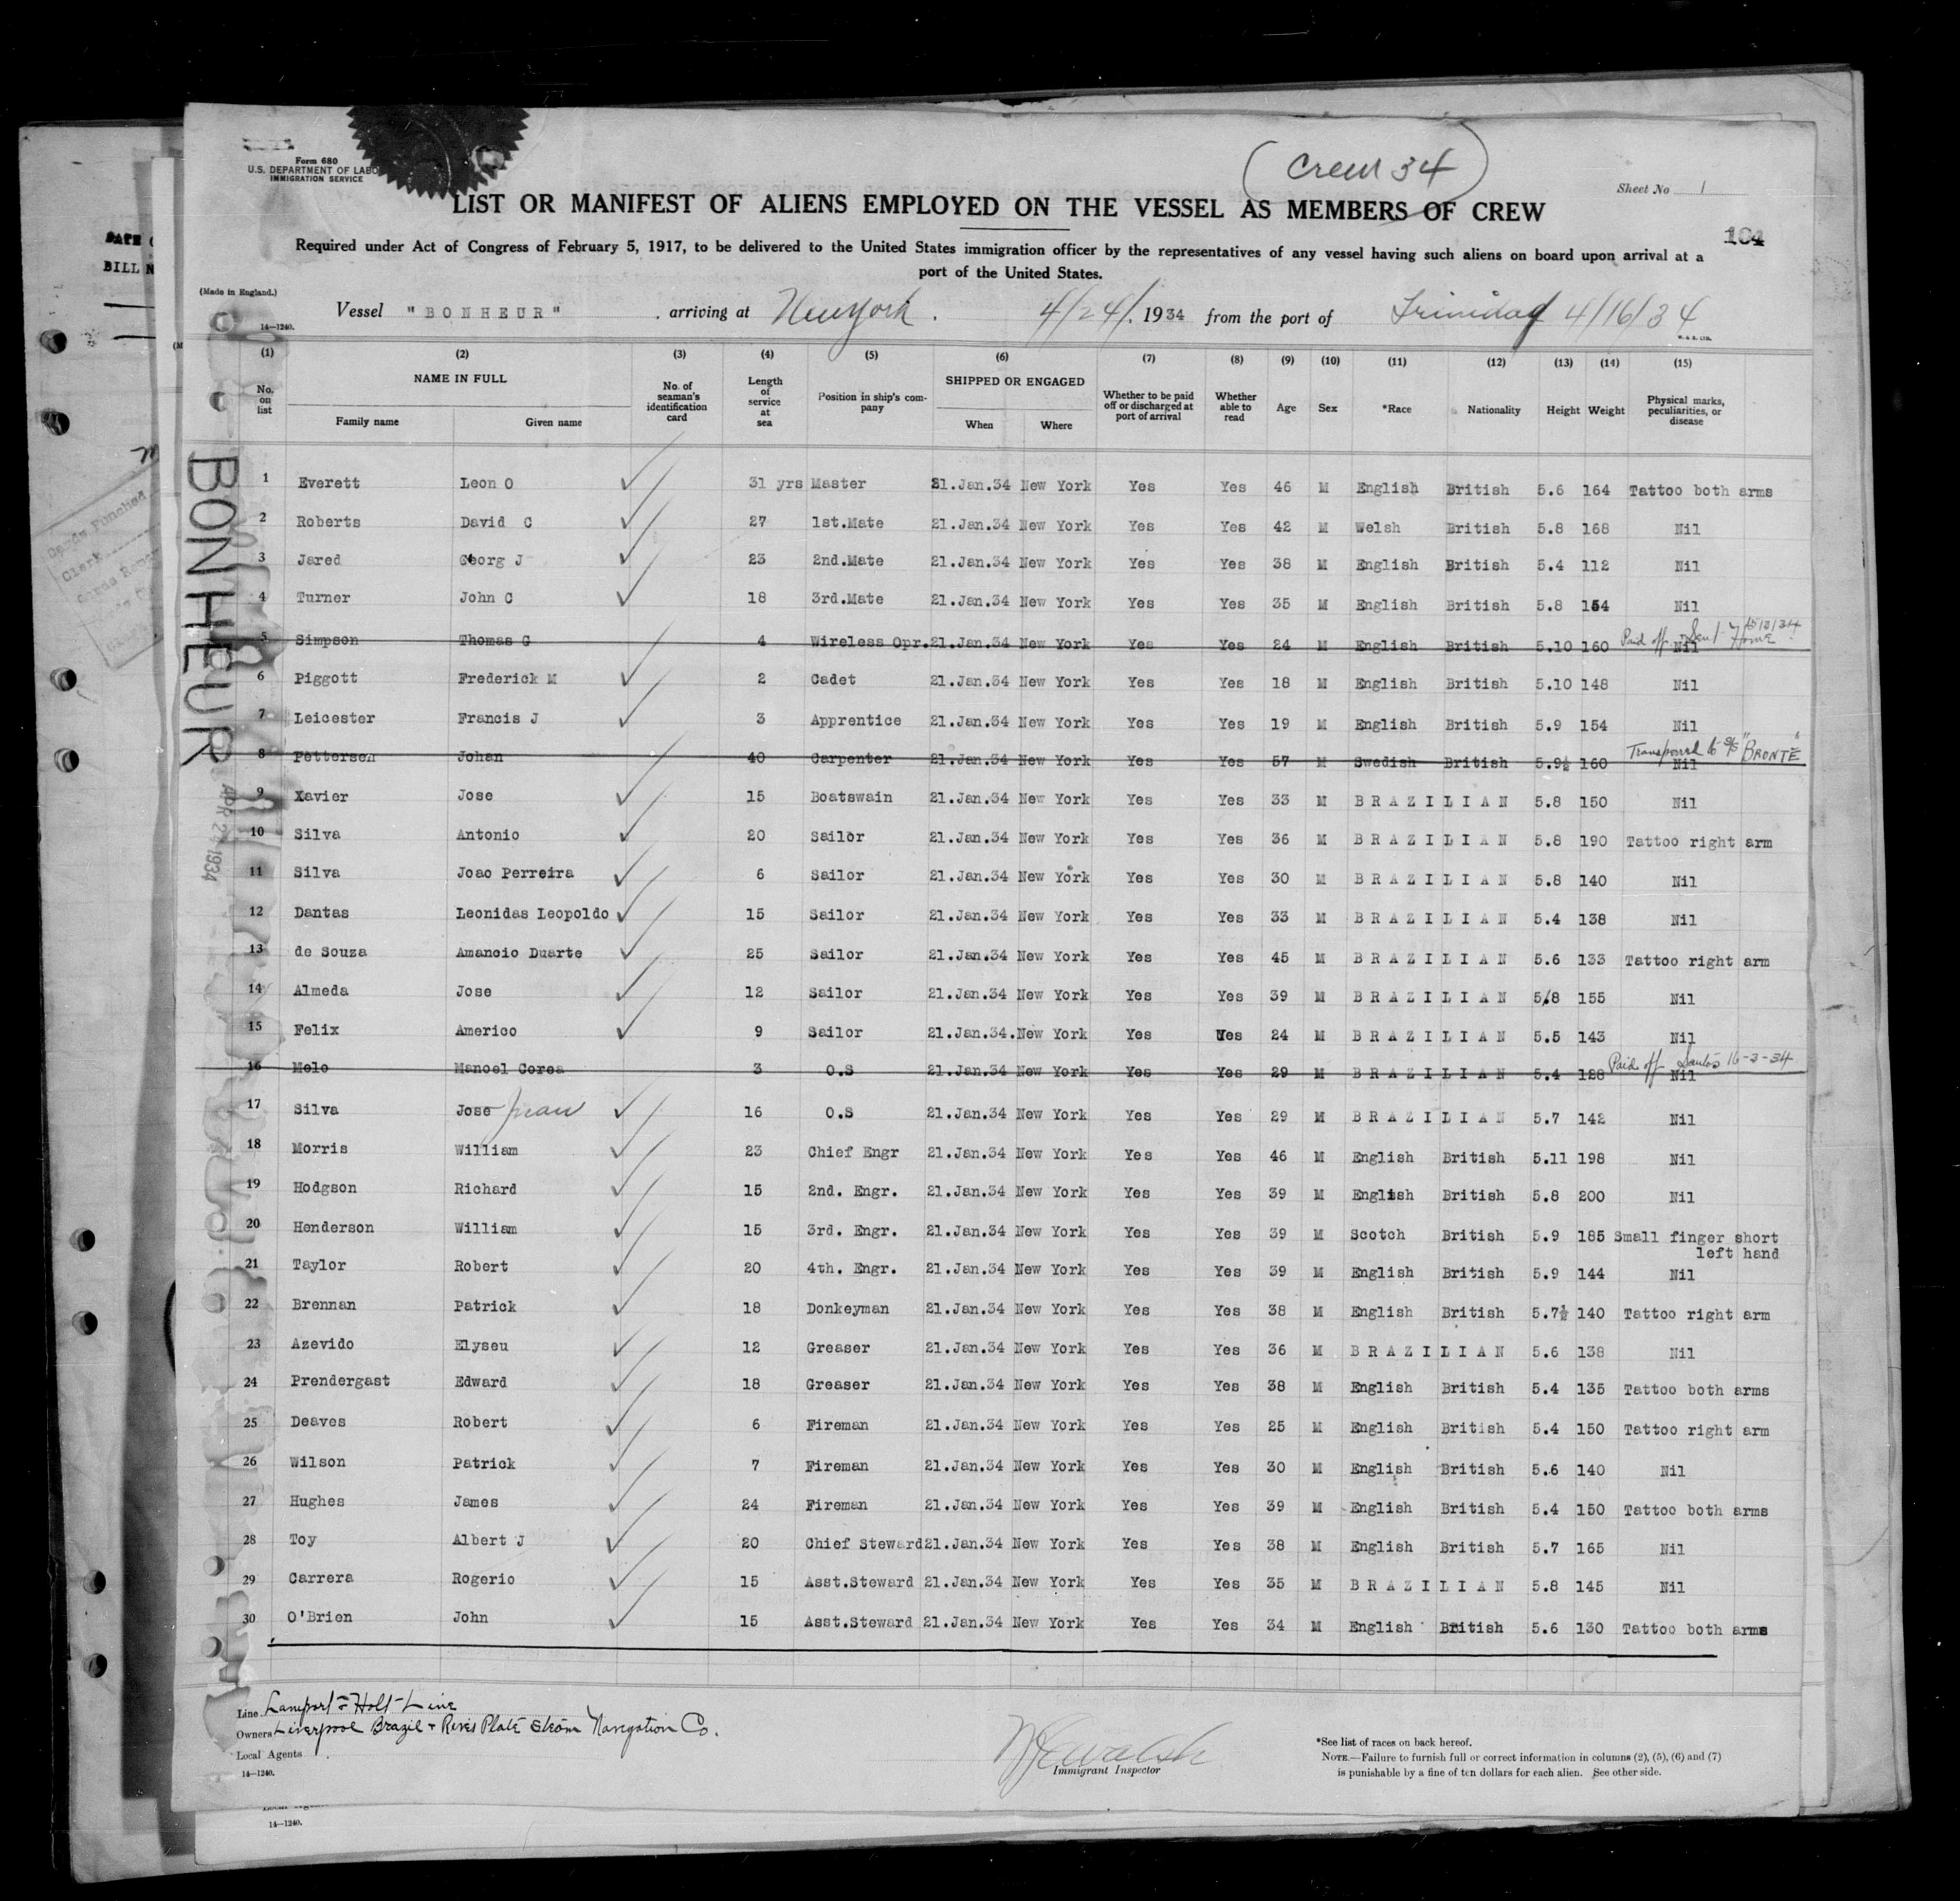 Form 680
U.S. DEPARTMENT OF LABO
IMMIGRATION SERVICE
(Crew 34)
Sheet No 1
LIST OR MANIFEST OF ALIENS EMPLOYED ON THE VESSEL AS MEMBERS OF CREW
104
Required under Act of Congress of February 5, 1917, to be delivered to the United States immigration officer by the representatives of any vessel having such aliens on board upon arrival at a
port of the United States.
(Made in England.)
Vessel "BONHEUR" , arriving at New York . 4/24/. 1934 from the port of Trinidad 4/16/34
14—1240.
(1) (2) (3) (4) (5) (6) (7) (8) (9) (10) (11) (12) (13) (14) (15)
No. on list NAME IN FULL Family name Given name No. of seaman's identification card Length of service at sea Position in ship's company SHIPPED OR ENGAGED When Where Whether to be paid off or discharged at port of arrival Whether able to read Age Sex *Race Nationality Height Weight Physical marks, peculiarities, or disease
BONHEUR
APR 24 1934
1 Everett Leon O 31 yrs Master 21.Jan.34 New York Yes Yes 46 M English British 5.6 164 Tattoo both arms
2 Roberts David C 27 1st.Mate 21.Jan.34 New York Yes Yes 42 M Welsh British 5.8 168 Nil
3 Jared Georg J 23 2nd.Mate 21.Jan.34 New York Yes Yes 38 M English British 5.4 112 Nil
4 Turner John C 18 3rd.Mate 21.Jan.34 New York Yes Yes 35 M English British 5.8 154 Nil
5 Simpson Thomas G 4 Wireless Opr. 21.Jan.34 New York Yes Yes 24 M English British 5.10 160 Nil Paid off Sent Home
6 Piggott Frederick M 2 Cadet 21.Jan.34 New York Yes Yes 18 M English British 5.10 148 Nil
7 Leicester Francis J 3 Apprentice 21.Jan.34 New York Yes Yes 19 M English British 5.9 154 Nil
8 Petterson Johan 40 Carpenter 21.Jan.34 New York Yes Yes 57 M Swedish British 5.9½ 160 Nil to S/S "BRONTE"
9 Xavier Jose 15 Boatswain 21.Jan.34 New York Yes Yes 33 M BRAZILIAN 5.8 150 Nil
10 Silva Antonio 20 Sailor 21.Jan.34 New York Yes Yes 36 M BRAZILIAN 5.8 190 Tattoo right arm
11 Silva Joao Perreira 6 Sailor 21.Jan.34 New York Yes Yes 30 M BRAZILIAN 5.8 140 Nil
12 Dantas Leonidas Leopoldo 15 Sailor 21.Jan.34 New York Yes Yes 33 M BRAZILIAN 5.4 138 Nil
13 de Souza Amancio Duarte 25 Sailor 21.Jan.34 New York Yes Yes 45 M BRAZILIAN 5.6 133 Tattoo right arm
14 Almeda Jose 12 Sailor 21.Jan.34 New York Yes Yes 39 M BRAZILIAN 5/8 155 Nil
15 Felix Americo 9 Sailor 21.Jan.34. New York Yes Yes 24 M BRAZILIAN 5.5 143 Nil
16 Melo Manoel Corea 3 O.S 21.Jan.34 New York Yes Yes 29 M BRAZILIAN 5.4 128 Nil Paid off Santos 16-3-34
17 Silva Jose Juan 16 O.S 21.Jan.34 New York Yes Yes 29 M BRAZILIAN 5.7 142 Nil
18 Morris William 23 Chief Engr 21.Jan.34 New York Yes Yes 46 M English British 5.11 198 Nil
19 Hodgson Richard 15 2nd. Engr. 21.Jan.34 New York Yes Yes 39 M English British 5.8 200 Nil
20 Henderson William 15 3rd. Engr. 21.Jan.34 New York Yes Yes 39 M Scotch British 5.9 185 Small finger short
left hand
21 Taylor Robert 20 4th. Engr. 21.Jan.34 New York Yes Yes 39 M English British 5.9 144 Nil
22 Brennan Patrick 18 Donkeyman 21.Jan.34 New York Yes Yes 38 M English British 5.7½ 140 Tattoo right arm
23 Azevido Elyseu 12 Greaser 21.Jan.34 New York Yes Yes 36 M BRAZILIAN 5.6 138 Nil
24 Prendergast Edward 18 Greaser 21.Jan.34 New York Yes Yes 38 M English British 5.4 135 Tattoo both arms
25 Deaves Robert 6 Fireman 21.Jan.34 New York Yes Yes 25 M English British 5.4 150 Tattoo right arm
26 Wilson Patrick 7 Fireman 21.Jan.34 New York Yes Yes 30 M English British 5.6 140 Nil
27 Hughes James 24 Fireman 21.Jan.34 New York Yes Yes 39 M English British 5.4 150 Tattoo both arms
28 Toy Albert J 20 Chief Steward 21.Jan.34 New York Yes Yes 38 M English British 5.7 165 Nil
29 Carrera Rogerio 15 Asst.Steward 21.Jan.34 New York Yes Yes 35 M BRAZILIAN 5.8 145 Nil
30 O'Brien John 15 Asst.Steward 21.Jan.34 New York Yes Yes 34 M English British 5.6 130 Tattoo both arms
Line Lamport & Holt Line
Owners Liverpool Brazil & River Plate Steam Navigation Co.
Local Agents
14—1240.
Immigrant Inspector
*See list of races on back hereof.
NOTE.—Failure to furnish full or correct information in columns (2), (5), (6) and (7)
is punishable by a fine of ten dollars for each alien. See other side.
14—1240.